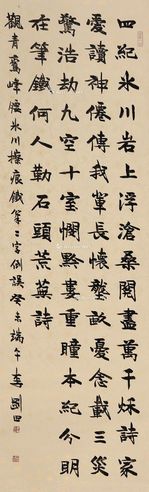 四紀氷川岩上浮滄桑閱盡萬千秌詩家
愛讀神僊傳我輩長懷壑畝憂念載三災
驚浩劫九空十室憫黔婁重瞳本紀分明
在筆鐵何人勒石頭荒蕪詩
觀青鸞峰腰氷川擦痕鐵筆二字例誤癸未端午李劉田